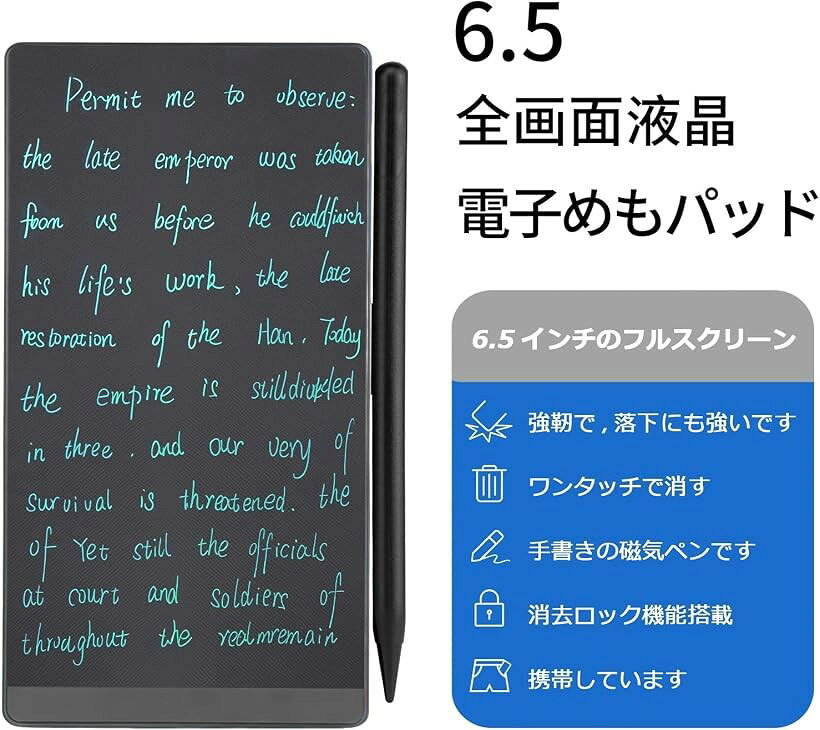 Permit me to observe:
the late emperor was taken
from us before he could finich
his life's work, the late
restoration of the Han. Today
the empire is still divided
in three. and our very of
survival is threatened. the
of Yet still the officials
at court and soldiers of
throughout the realm remain
6.5
全画面液晶
電子めもパッド
6.5インチのフルスクリーン
強靭で,落下にも強いです
ワンタッチで消す
手書きの磁気ペンです
消去ロック機能搭載
携帯しています